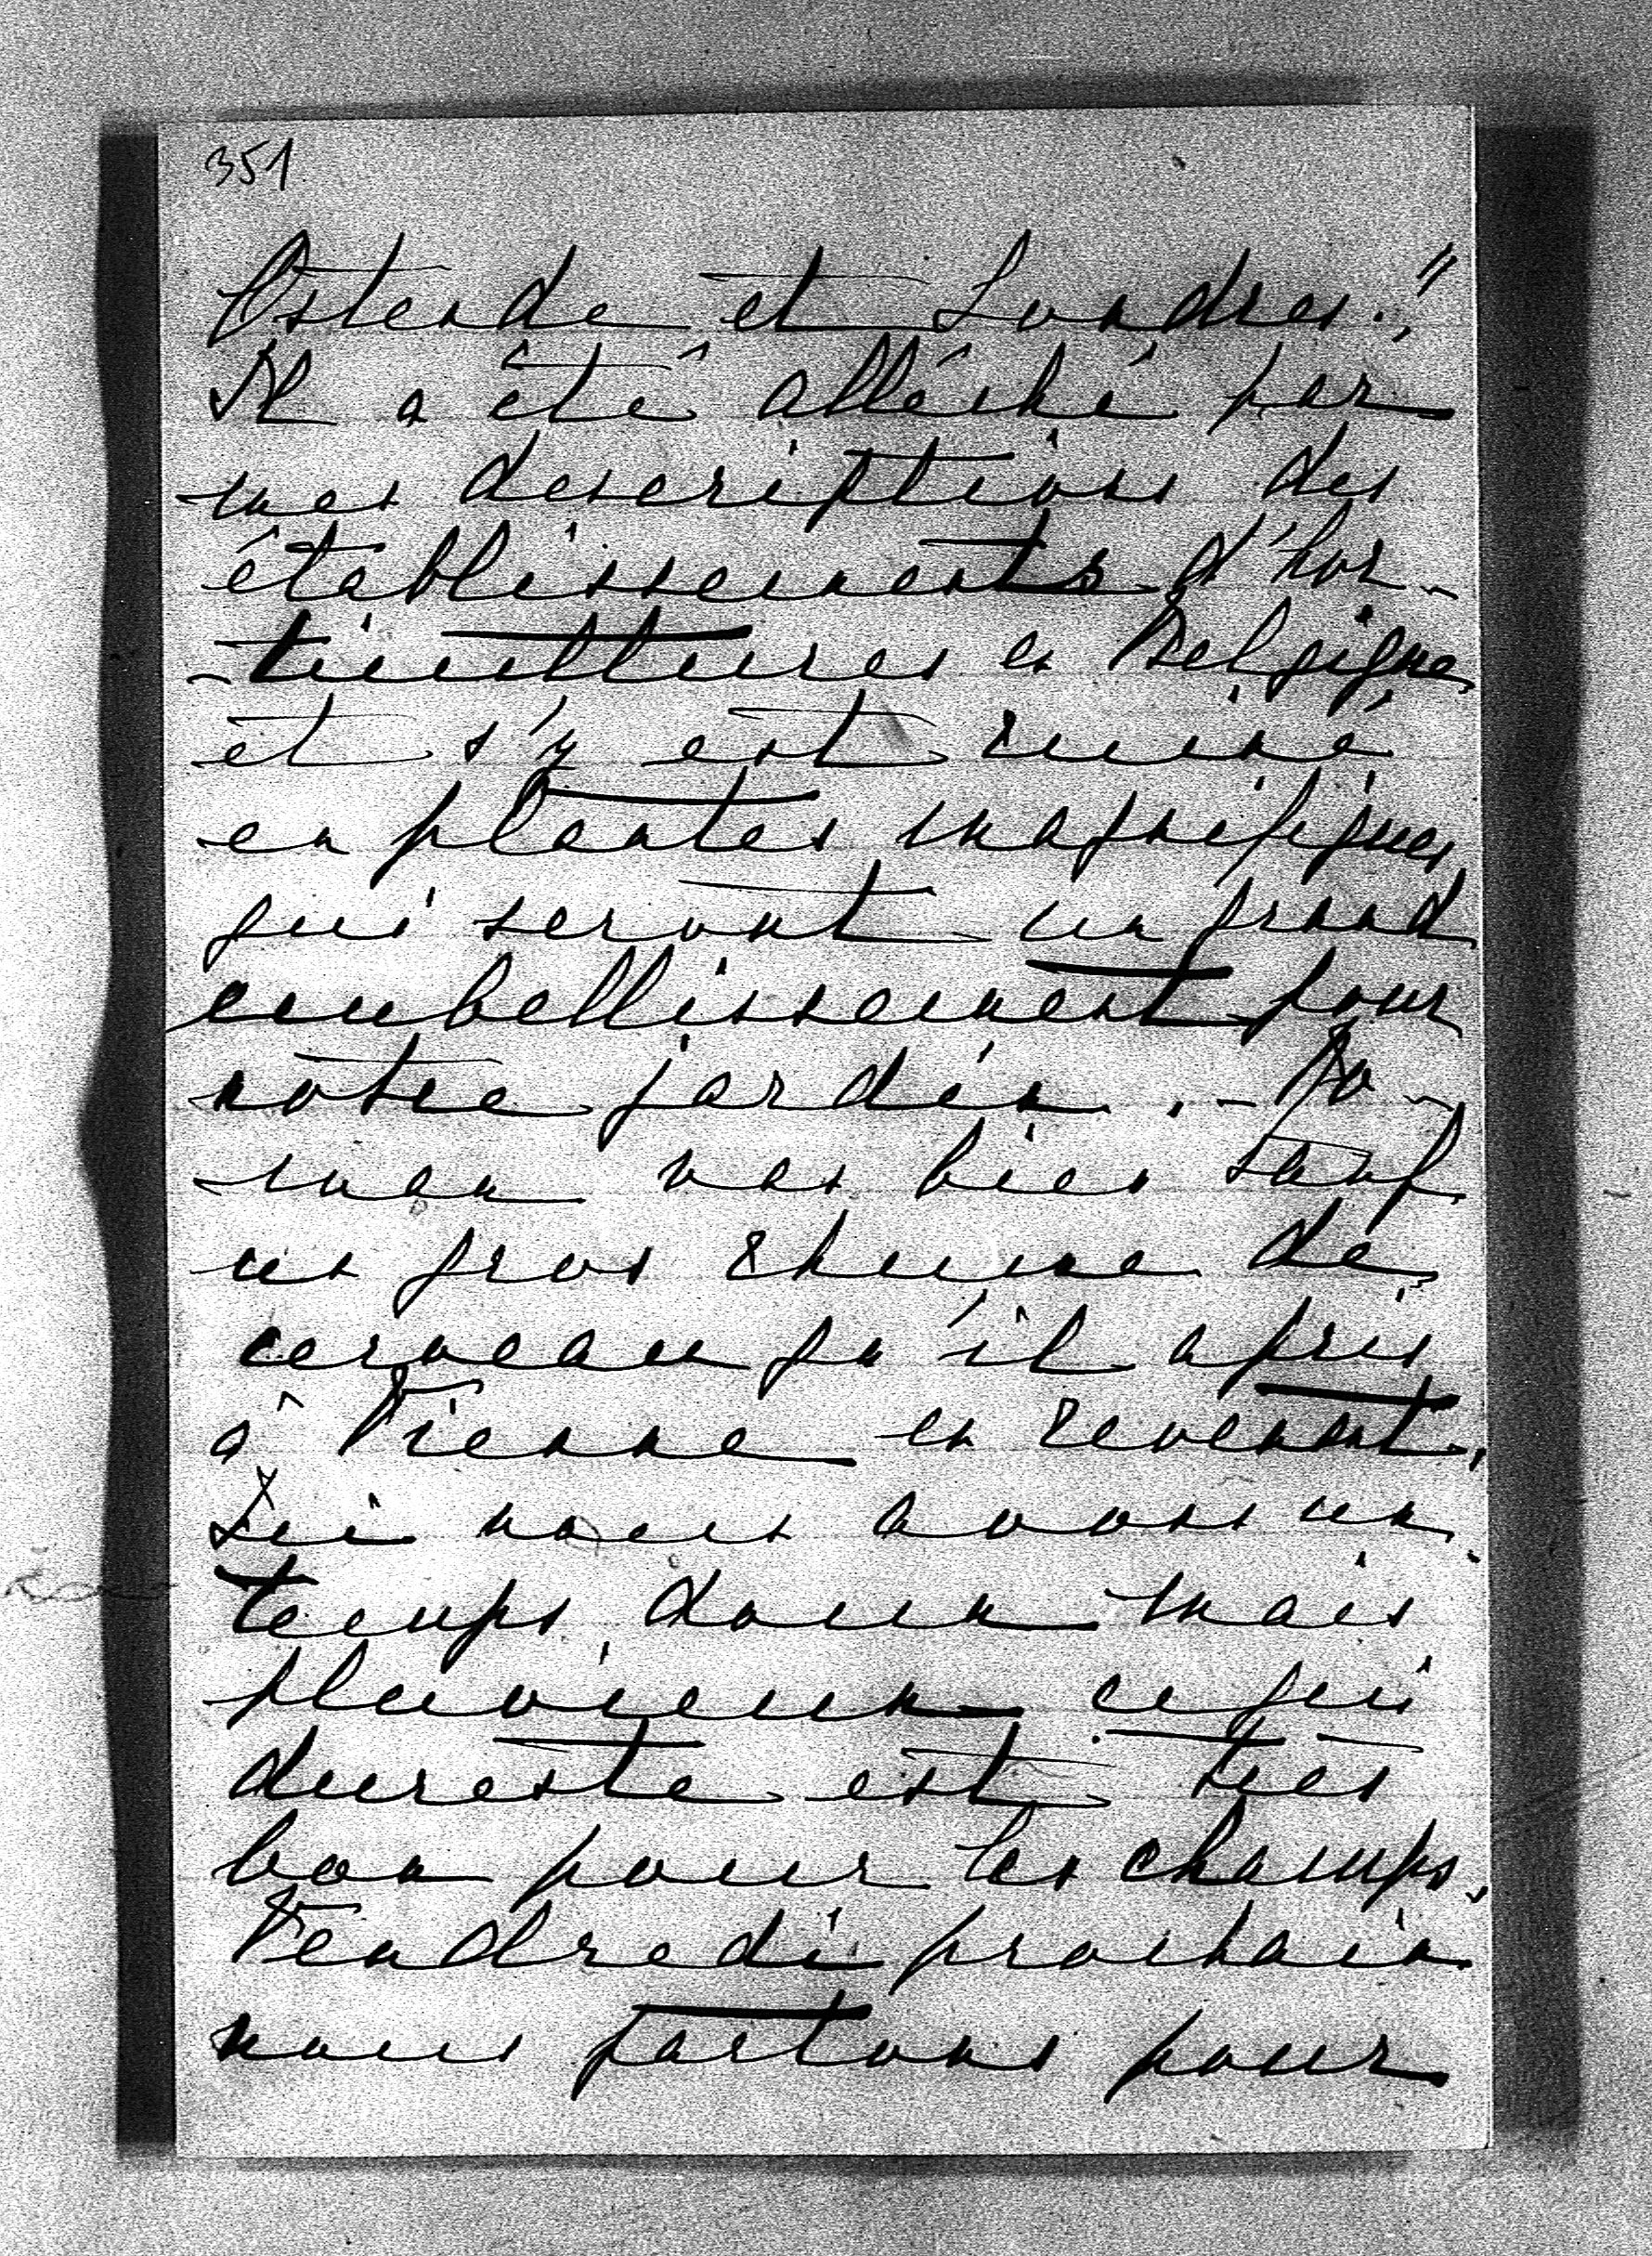 351
Ostende et Londres!!
Il a été alléché par
mes descriptions des
établissements d'hor-
-ticultures en Belgique
et s'y est ruiné
en plantes magnifiques
qui seront un grand
embellissement pour
notre jardin. - Ro-
-man vas bien sauf
un gros rhume de
cerveau qu'il a pris
à Vienne en revenant.
Ici nous avons un
temps doux mais
pluvieux ce qui
dureste est très
bon pour les champs.
Vendredi prochain
nous partons pour